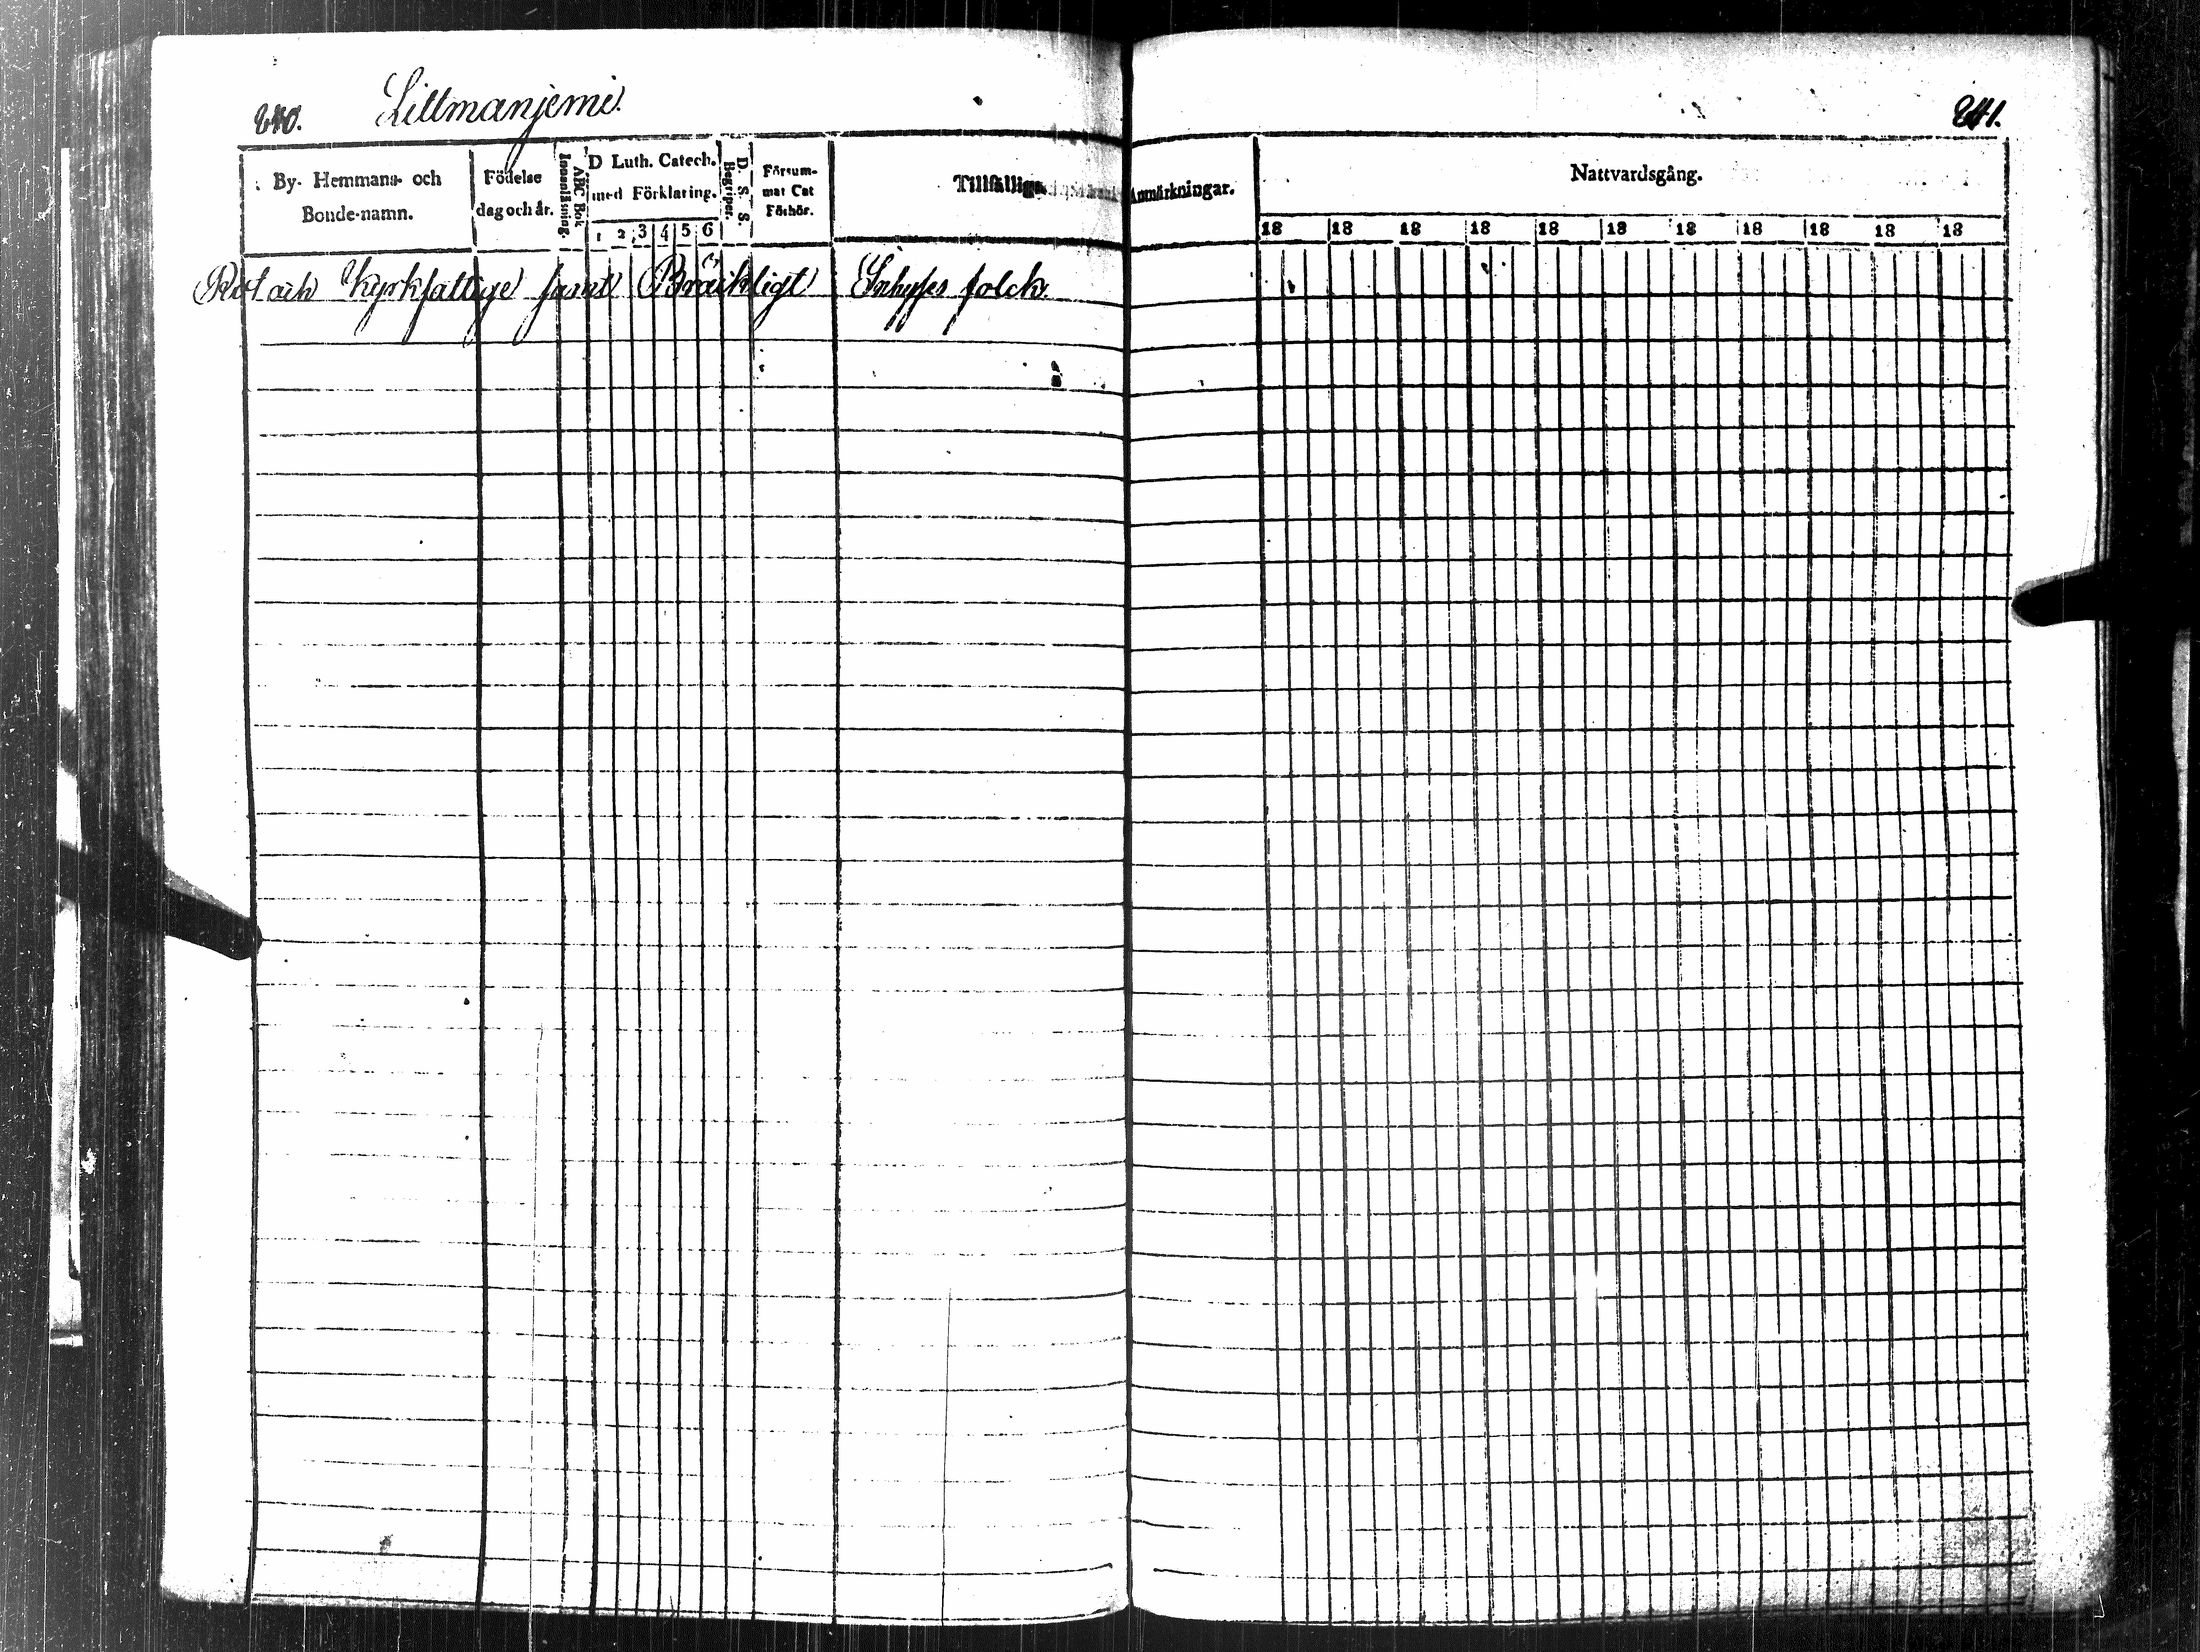 240. Littmanjemi.
241.
By- Hemmans- och
Bonde-namn.
Födelse
dag och år.
Innanläsning.
ABC Bok
D Luth. Catech.
med Förklaring.
1 2 3 4 5 6
D. S. S.
Begriper.
Försum-
mat Cat
Förhör.
Tillfällige
Anmärkningar.
Nattvardsgång.
18 18 18 18 18 18 18 18 18 18 18
Rot och Kyrkfattige samt Bräckligt Inhyses folck.